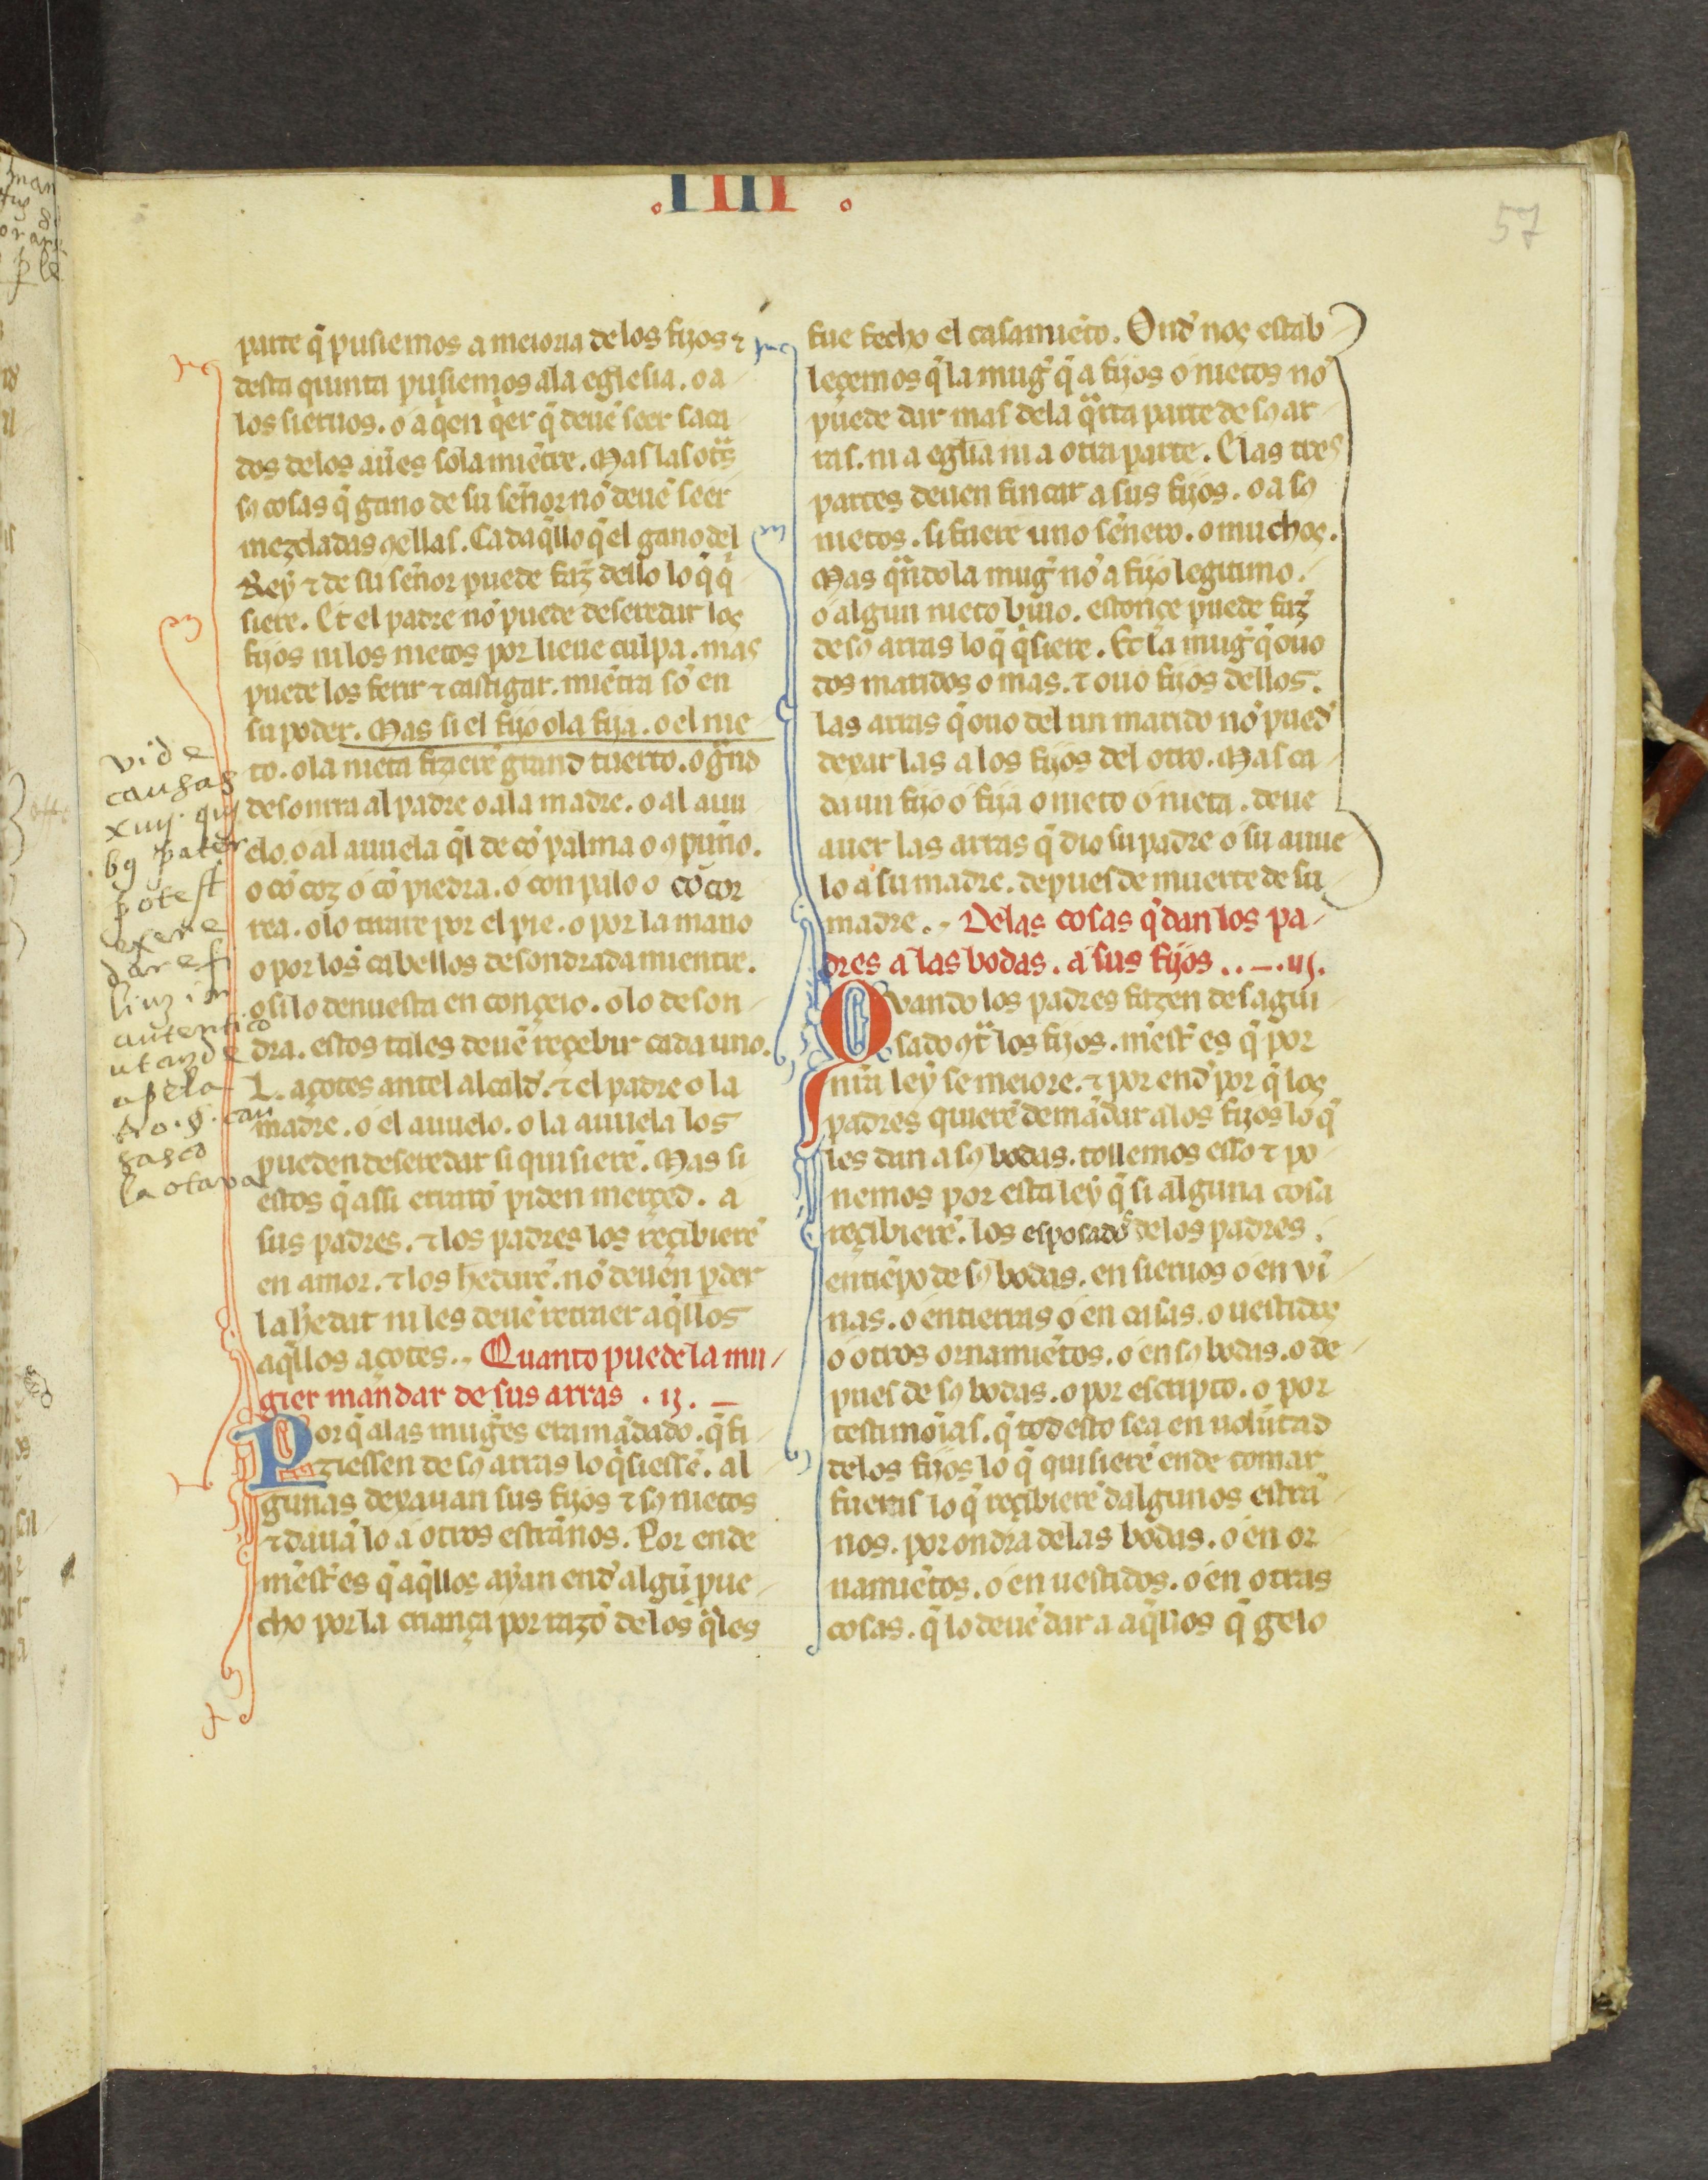 .IIII.
57
parte q̃ pusiemos a meioria delos fijos ⁊
desta quinta pusiemos ala eglesia. o a
los sieruos. o a qen qer q̃ deuẽ seer saca
dos delos au̾es solamiẽtre. Mas las ots̃
sꝯ cosas q̃ gano de su señor nõ deuẽ seer
mezcladas ꝯellas. Ca daq̃llo q̃ el gano del
Rey ⁊ de su señor puede faz̃ dello lo q̃ q̃
siere. Et el padre nõ puede deseredar los
fijos ni los nietos por lieue culpa. mas
puede los ferir ⁊ castigar. miẽtra sõ en
su poder. Mas si el fijo o la fija. o el nie
to. o la nieta fizierẽ grand tuerto. o g̃nd
desonrra al padre o ala madre. o al auu
elo. o al auuela q̃l de cõ palma o ꝯ puño.
o cõ coz o cõ piedra. o con palo o cõ cor
rea. o lo tirare por el pie. o por la mano
o por los cabellos desondradamientre.
o si lo denuesta en conçeio. o lo deson
dra. estos tales deuẽ reçebir cada uno.
L. açotes antel alcald̾. ⁊ el padre o la
madre. o el auuelo. o la auuela los
pueden deseredar si quisierẽ. Mas si
estos q̃ assi erraro̾ piden merçed. a
sus padres. ⁊ los padres los reçibierẽ
en amor. ⁊ los hedarẽ. nõ deuen ꝑder
la h̾edat ni les deuẽ retraer aq̃llos
aq̃llos açotes. Quanto puede la mu
gier mandar de sus arras . ij.
Porq̃ alas mug̾es era mãdado. q̃ fi
ziessen de sꝯ arras lo q̃ siessẽ. al
gunas dexauan sus fijos ⁊ sꝯ nietos
⁊ dauã lo a otros estranos. Por ende
mẽst̾ es q̃ aq̃llos ayan end̾ algũ pue
cho por la criança por razõ de los q̃les
fue fecho el casamiẽto. Ond̾ nos estab
leçemos q̃ la mug̾ q̃ a fijos o nietos nõ
puede dar mas dela q̃rta parte de sꝯ ar
ras. ni a eglia ni a otra parte. Elas tres
partes deuen fincar a sus fijos. o a sꝯ
nietos. si fuere uno sẽnero. o muchos.
Mas q̃ndo la mug̾ nõ a fijo legitimo.
o algun nieto biuo. estonçe puede faz̃
de sꝯ arras lo q̃ q̃siere. Et la mug̾ q̃ ouo
dos maridos o mas. ⁊ ouo fijos dellos.
las arras q̃ ouo del un marido nõ pued̾
dexar las a los fijos del otro. Mas ca
da un fijo o fija o nieto o nieta. deue
auer las arras q̃ dio su padre o su auue
lo a su madre. depues de muerte de su
madre. Delas cosas q̃ dan los pa
dres a las bodas. a sus fijos . iij.
Quando los padres fazen desagui
sado ꝯt̃ los fijos. mẽst̾ es q̃ por
nr̃a ley se meiore. ⁊ por end̾ por q̃ los
padres quierẽ demãdar a los fijos lo q̃
les dan a sꝯ bodas. tollemos esso ⁊ po
nemos por esta ley q̃ si alguna cosa
reçibierẽ. los esposados de los padres.
en tiẽpo de sꝯ bodas. en sieruos o en vi
nas. o en tierras o en casas. o uestidos
o otros ornamiẽtos. o en sꝯ bodas. o de
pues de sꝯ bodas. o por escripto. o por
testimoĩas. q̃ tod esto sea en uolũtad
delos fijos lo q̃ quisierẽ ende tomar
fueras lo q̃ reçibierẽ dalgunos estra
nos. por ondra delas bodas. o en or
namiẽtos. o en uestidos. o en otras
cosas. q̃ lo deuẽ dar a aq̃llos q̃ gelo
vide
causas
xiiij. qui
bꝯ pater
potest
exere
dare fi
lium in
autentico
ut cum de
apela